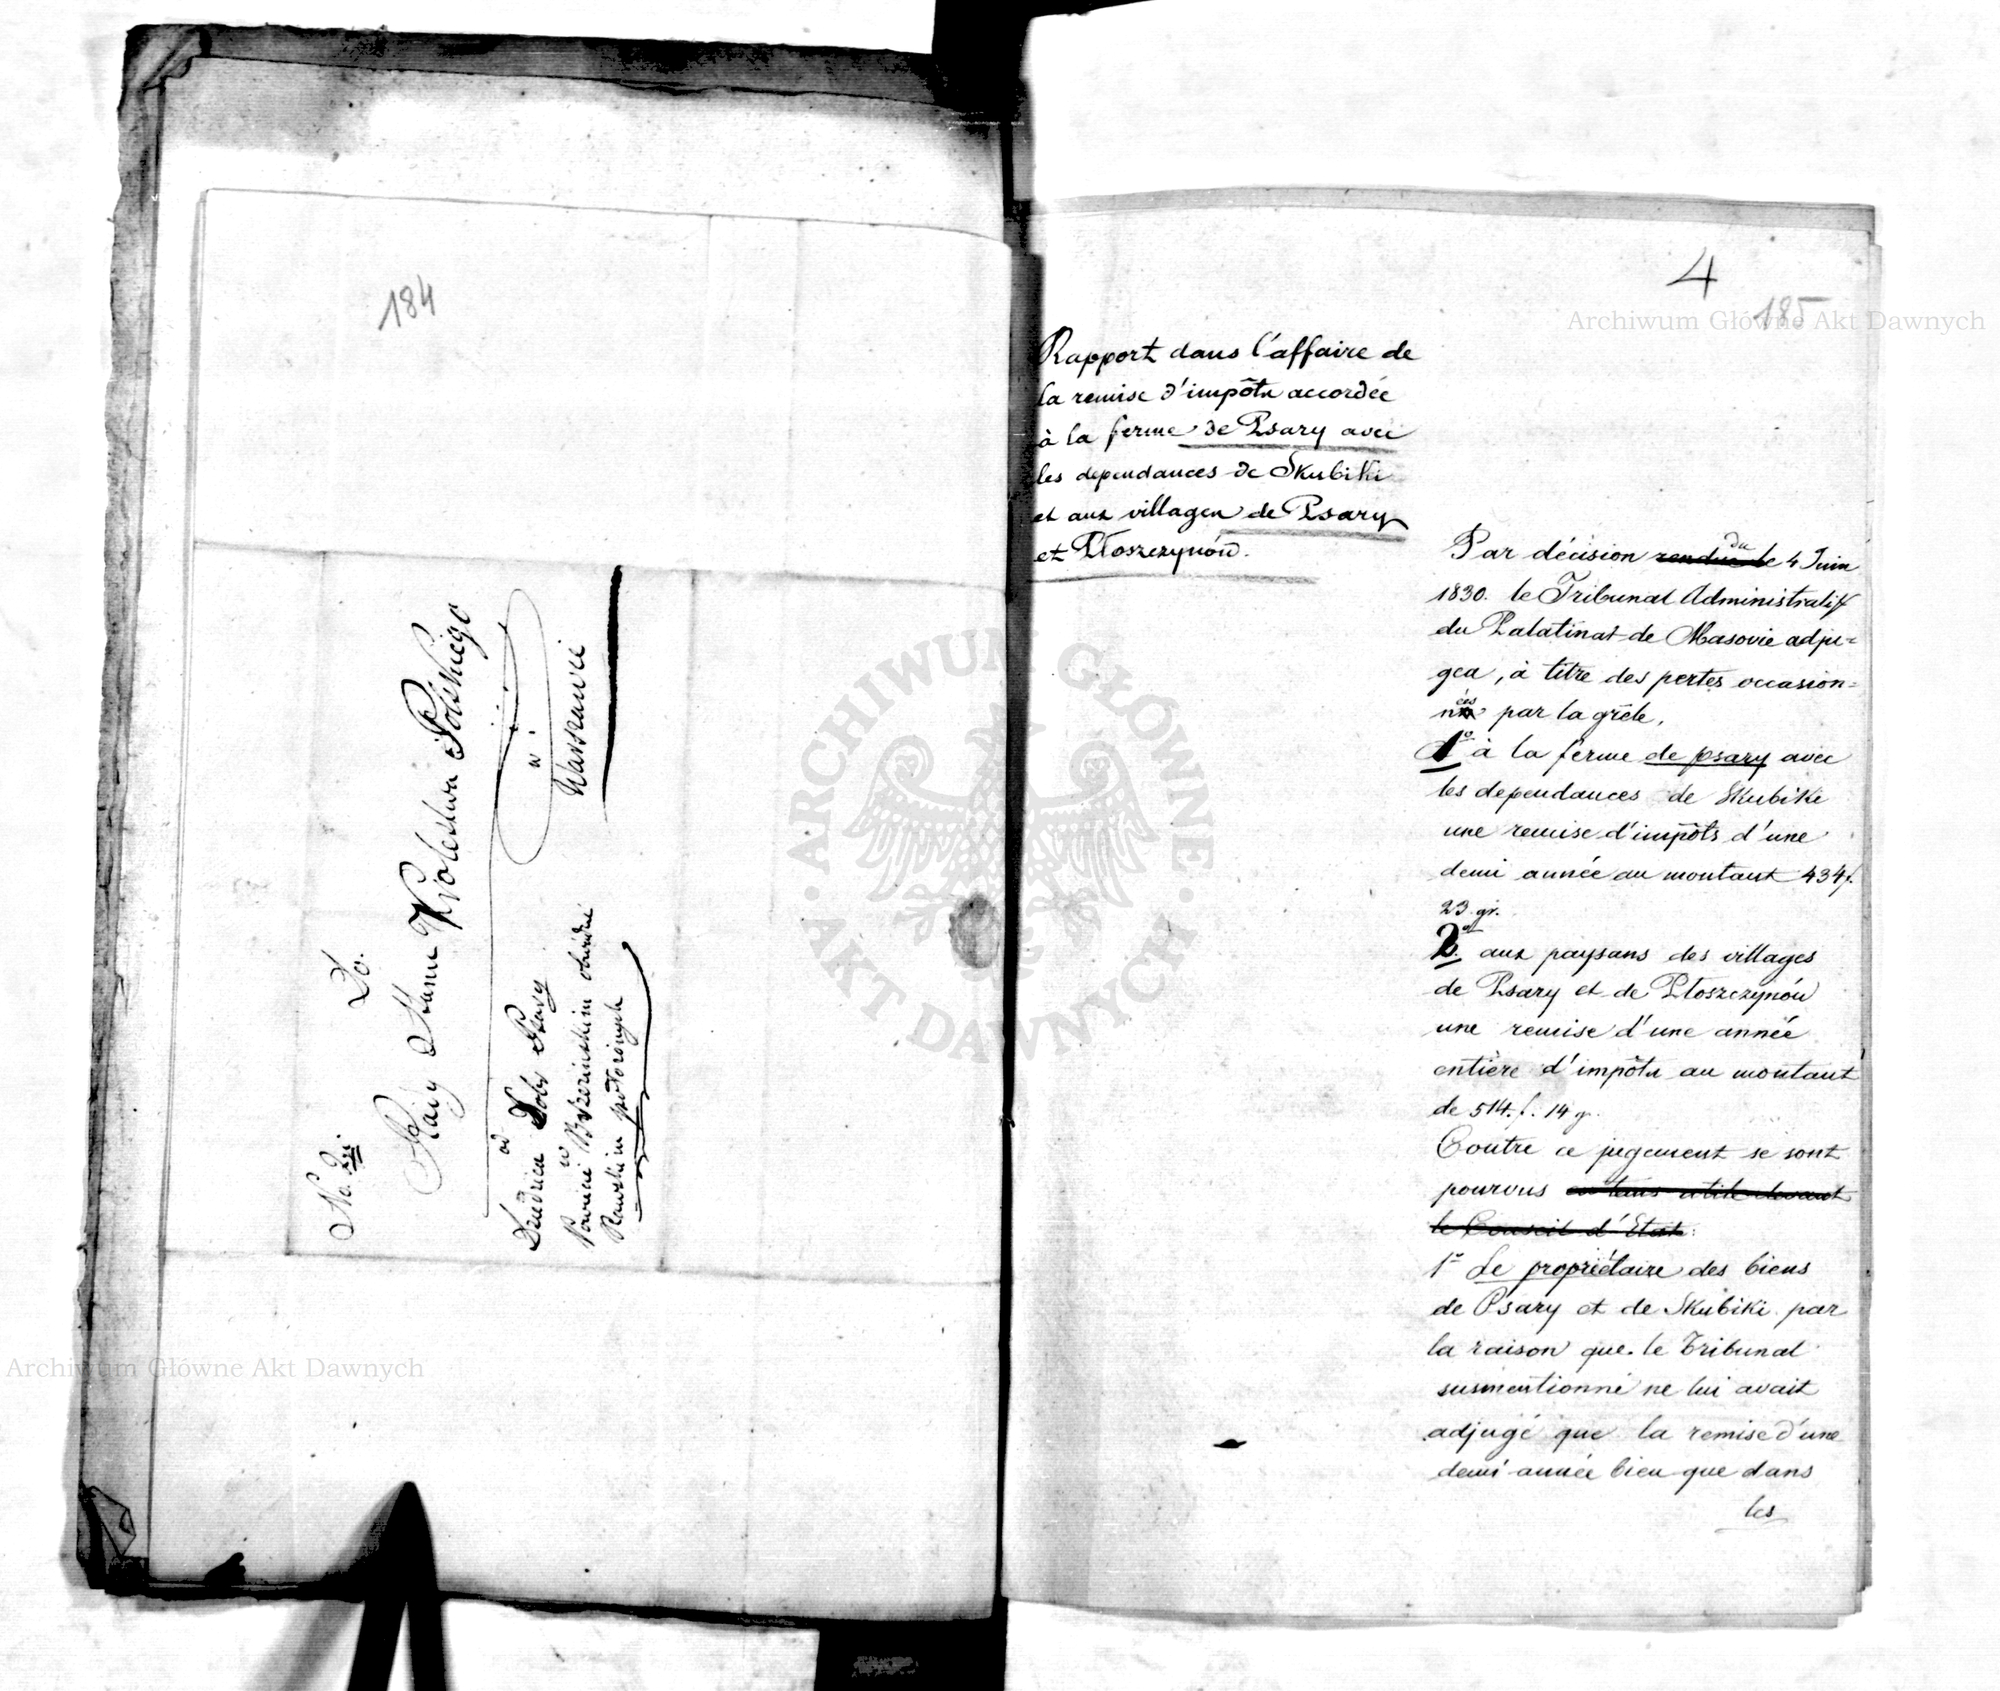 184
No 2gi
Do.
Rady Stanu Krolestwa Polskiego
w
Warszawie
od
Dziedzica Dobr Psary
w Powiecie Brzezinskim obwodzie
Rawskim położonych
4
185
Rapport dans l'affaire de
la remise d'impôts accordée
à la ferme de Psary avec
les dependances de Skubiki
et aux villages de Psary
et Płoszczynów.
Par décision rendue le du 4 Juin
1830. le Tribunal Administratif
du Palatinat de Masovie adju=
gea, à titre des pertes occasion=
nées par la grêle,
1º à la ferme de Psary avec
les dependances de Skubiki
une remise d'impôts d'une
demi année au montant 434 f.
23 gr.
2º aux paysans des villages
de Psary et de Płoszczynów
une remise d'une année
entière d'impôts au montant
de 514. f. 14 g.
Contre ce jugement se sont
pourvus en tems utile devant
le Conseil d'Etat:
1º Le propriétaire des biens
de Psary et de Skubiki par
la raison que le Tribunal
susmentionné ne lui avait
adjugé que la remise d'une
demi année bien que dans
les
Archiwum Główne Akt Dawnych
Archiwum Główne Akt Dawnych
ARCHIWUM GŁÓWNE
AKT DAWNYCH